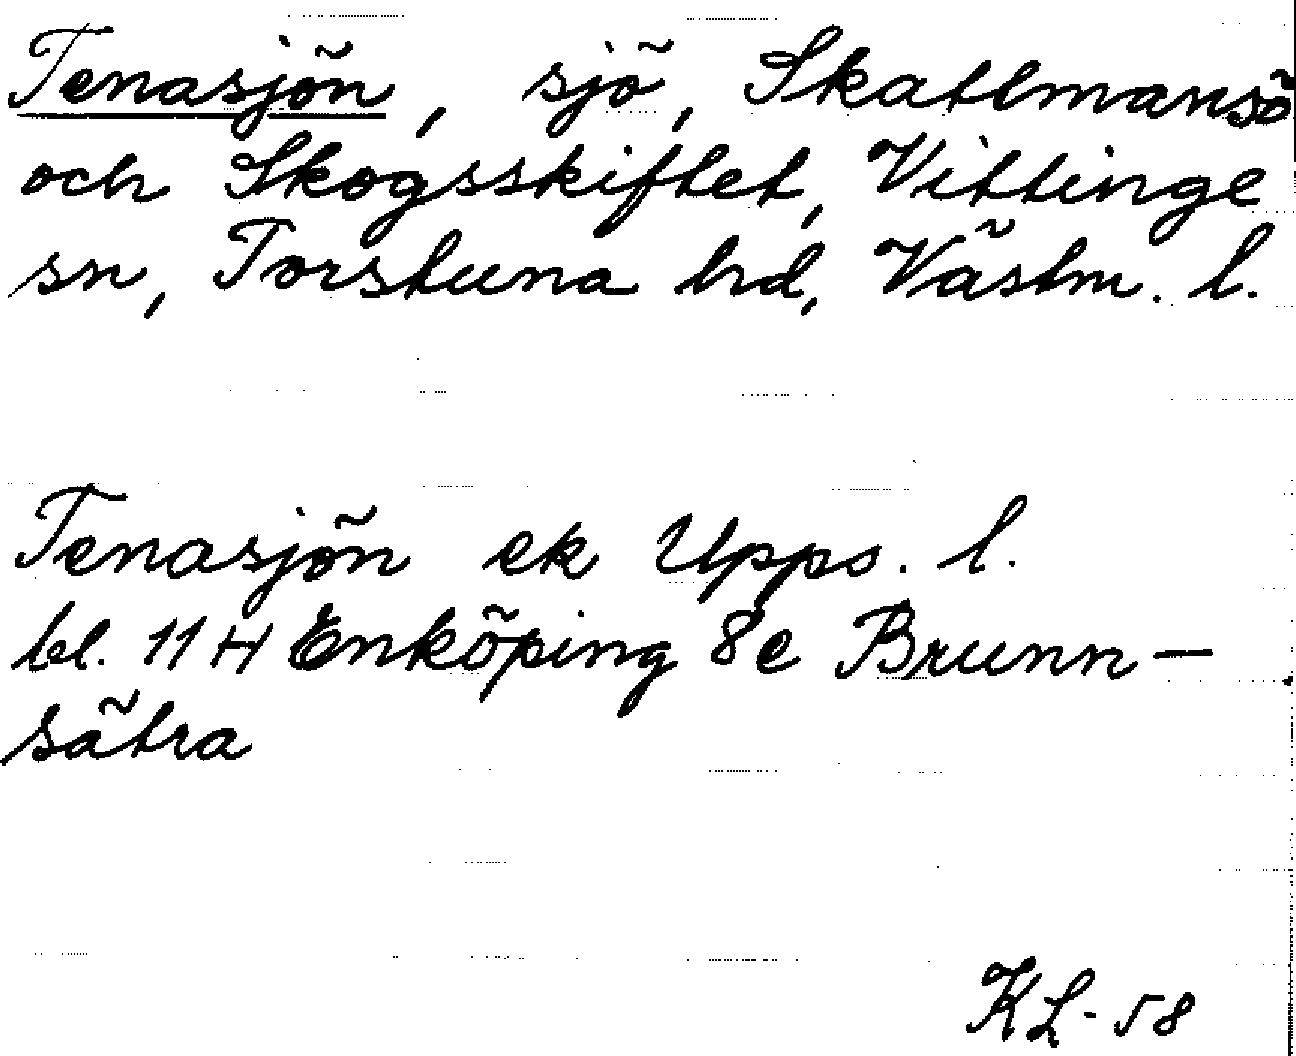 Tenasjön, sjö, Skattmansö
och Skogsskiftet, Vittinge
sn, Torstuna hd, Västm. l.
Tenasjön ek Upps. l.
bl. 11 H Enköping 8e Brunn-
sätra
KL-58